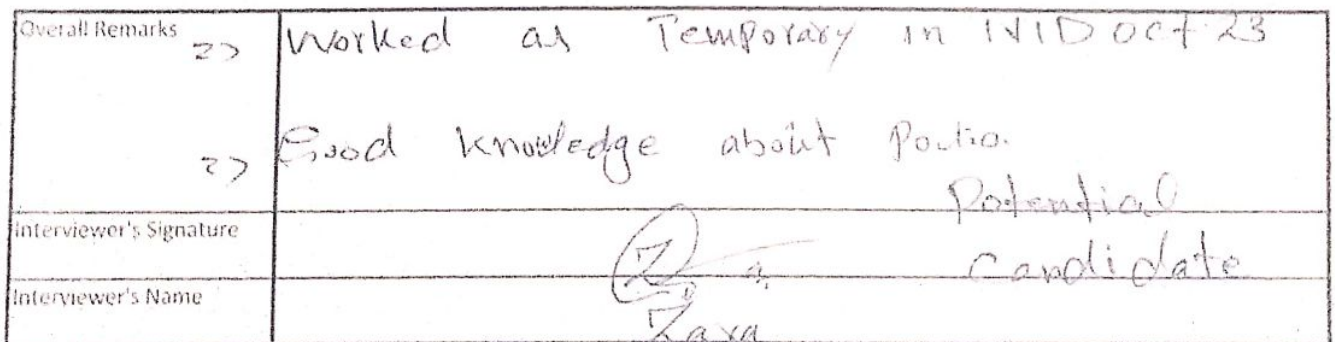 Overall Remarks
=> Worked as Temporary in NID oct 23
=> Good knowledge about
Potential
Interviewer's Signature
Candidate
Interviewer's Name
Zara